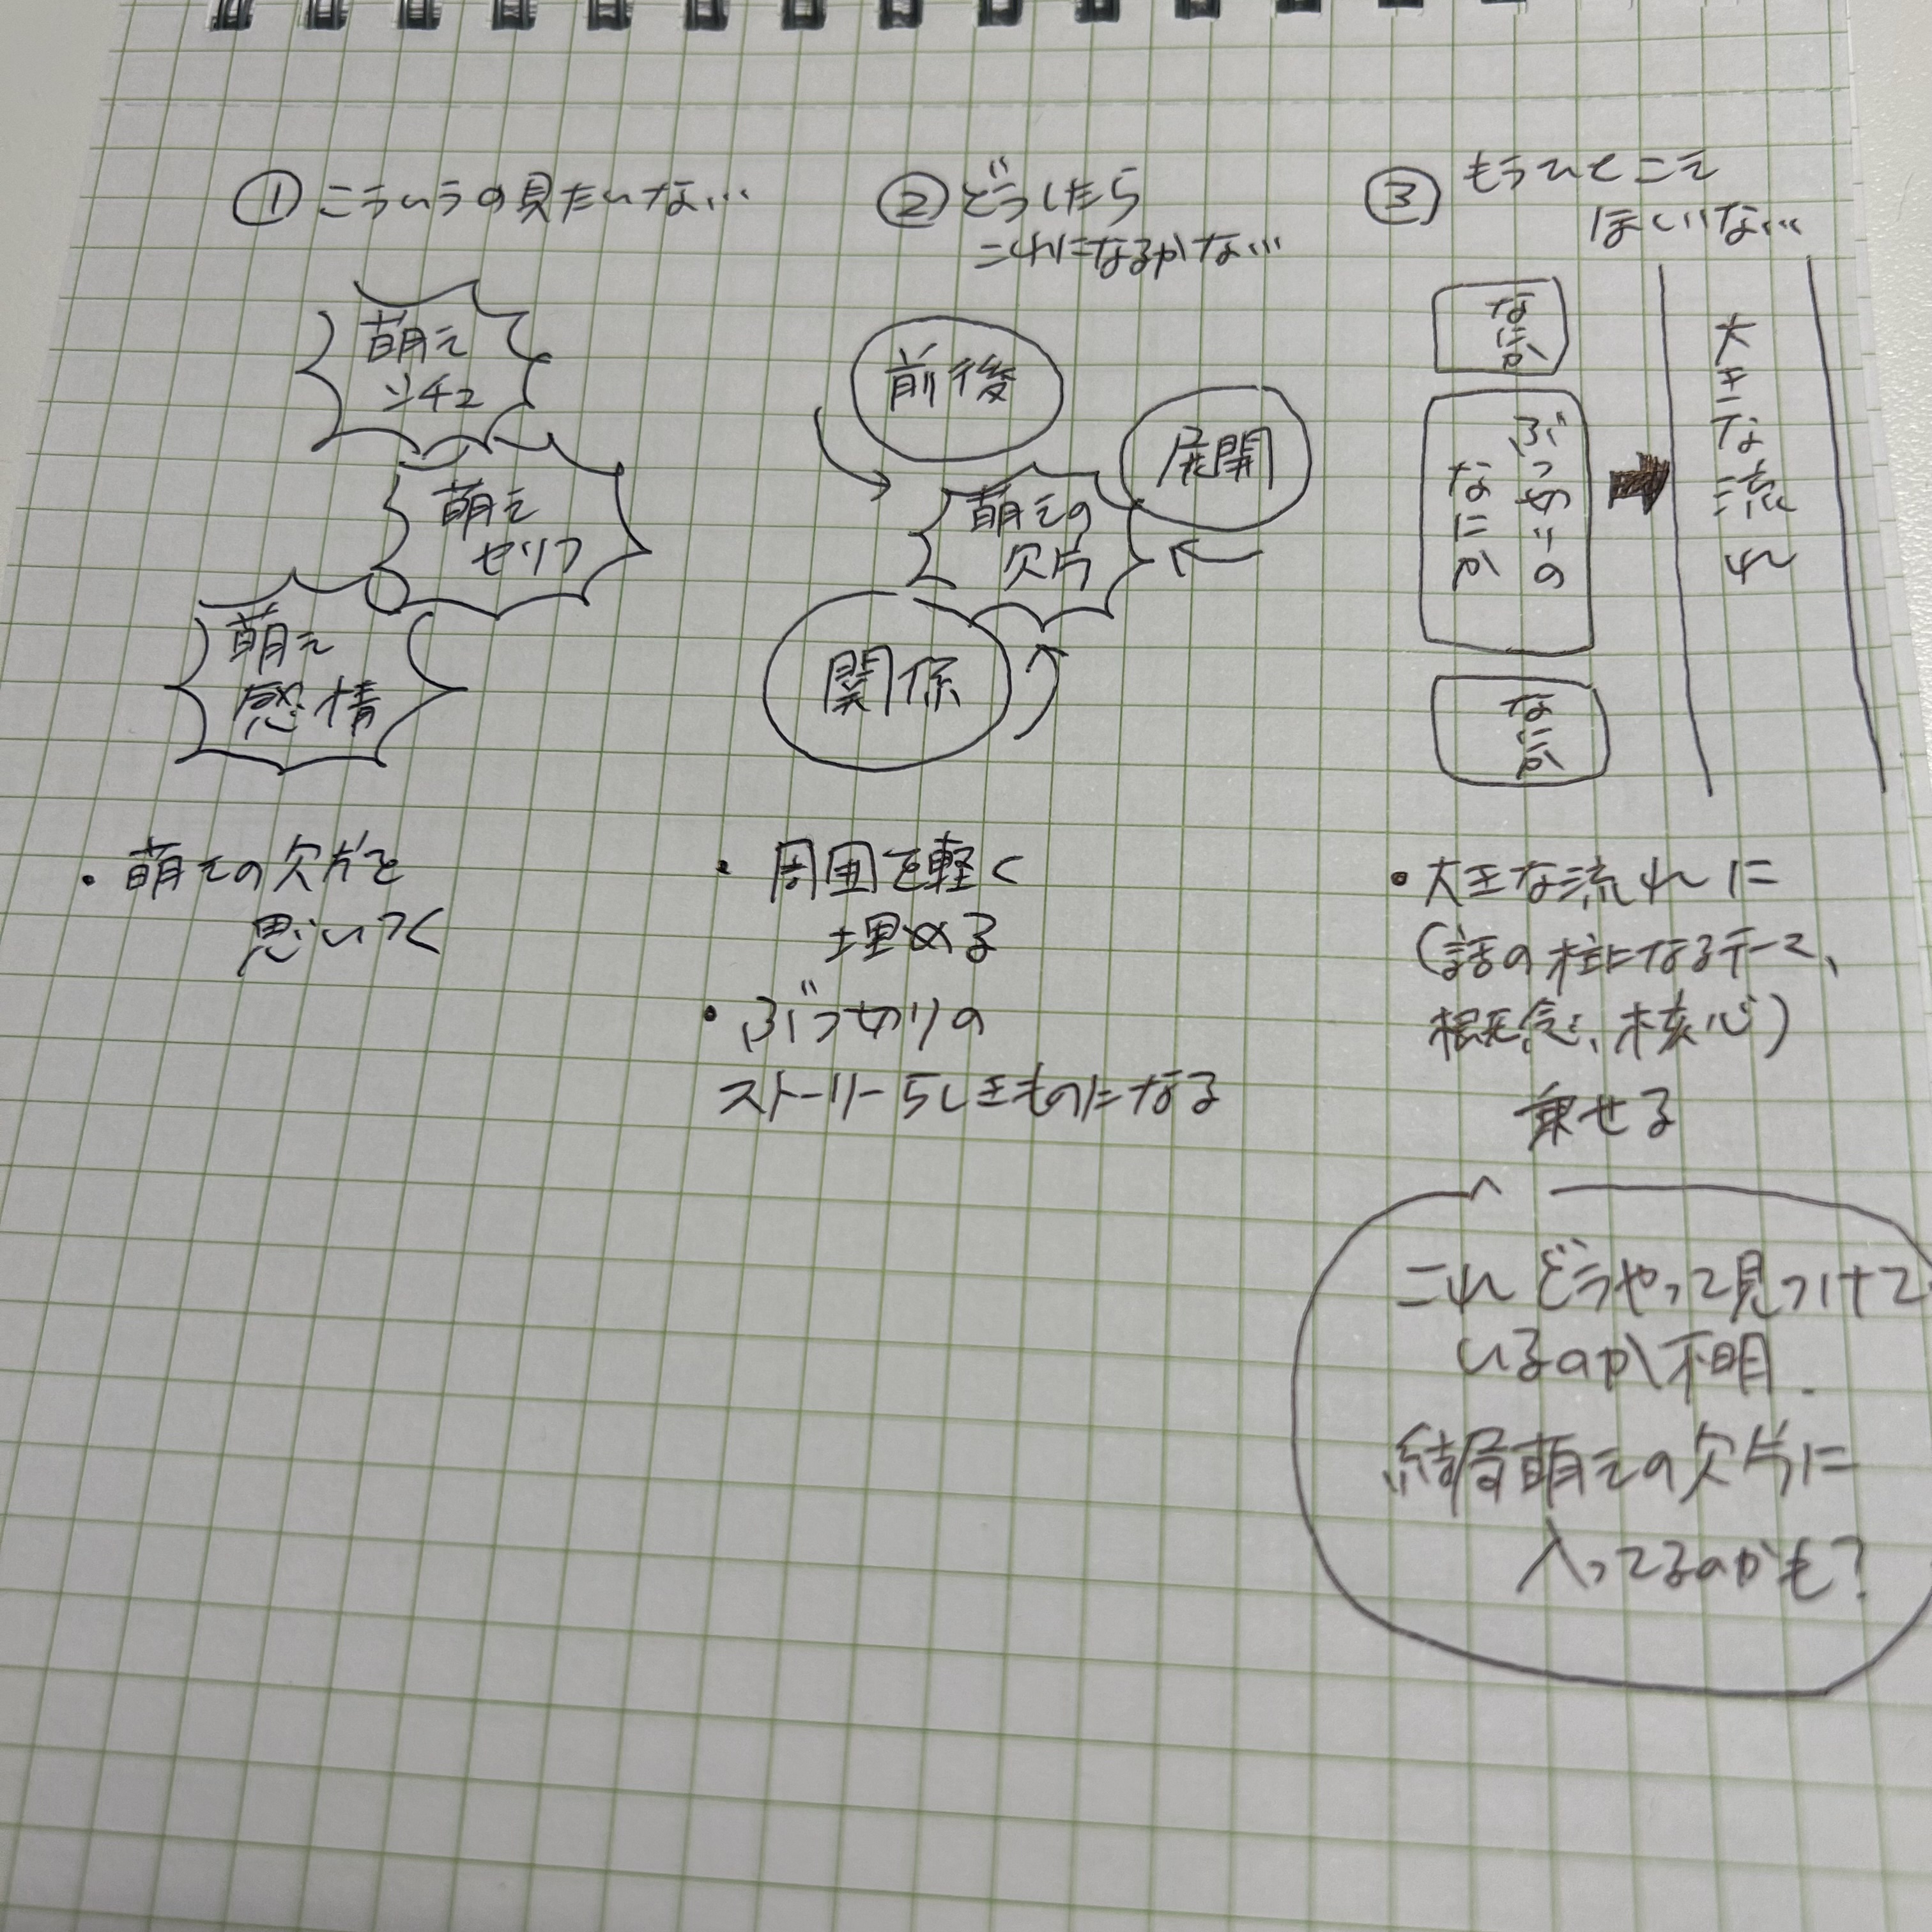 ① こういうの見たいな…
萌え
シチュ
萌え
セリフ
萌え
感情
・萌えの欠片を
思いつく
② どうしたら
これになるかな…
前後
展開
萌えの
欠片
関係
・周囲を軽く
埋める
・ぶつ切りの
ストーリーらしきものになる
③ もうひとこえ
ほしいな…
なにか
ぶつ切りの
なにか
なにか
大きな流れ
・大きな流れに
(話の柱になるテーマ、
概念、核心)
乗せる
これどうやって見つけて
いるのか不明.
結局萌えの欠片に
入ってるのかも?